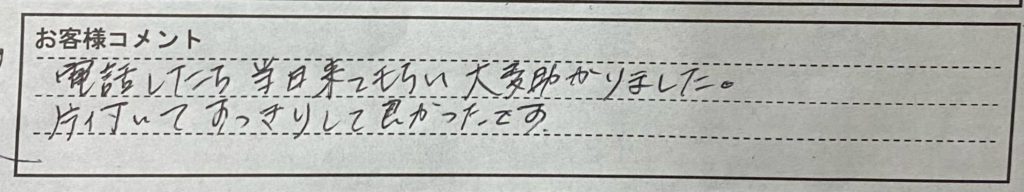 お客様コメント
電話したら当日来てもらい大変助かりました。
片付いてすっきりして良かったです